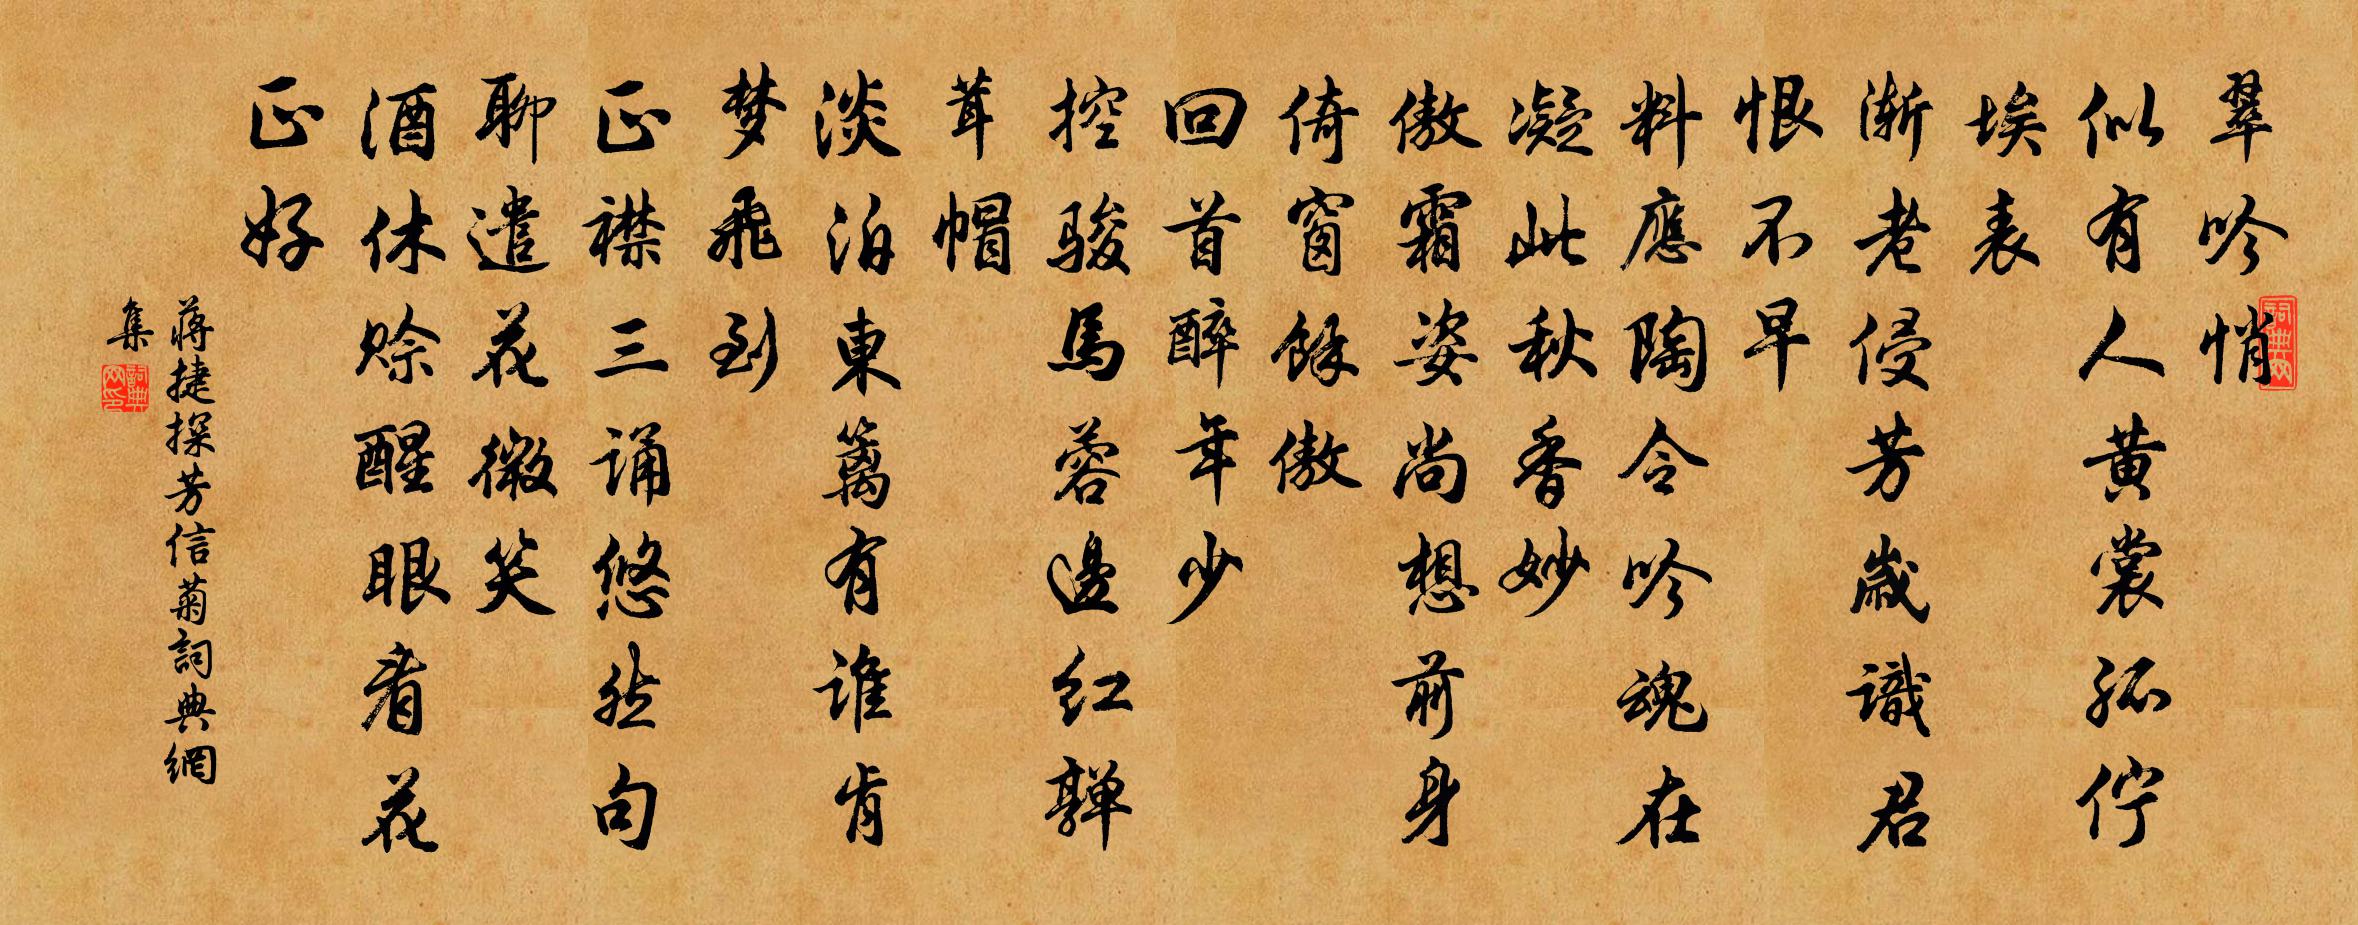 翠吟悄
似有人黄裳孤佇
埃表
渐老侵芳岁識君
恨不早
料應陶令吟魂在
凝此秋香妙
傲霜姿尚想前身
倚窗餘傲
回首醉年少
控骏馬蓉邊红鞾
茸帽
淡泊東篱有谁肯
梦飛到
正襟三诵悠然句
聊遣花微笑
酒休赊醒眼看花
正好
蒋捷探芳信菊詞典網
集
詞典网
詞典网印